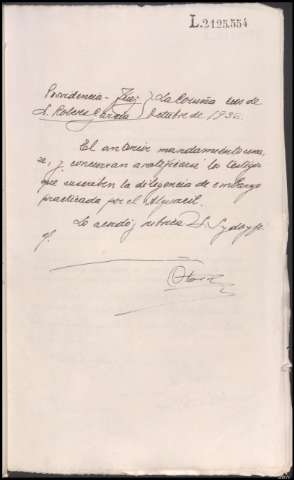 L.2125.554
Providencia - Juez } La Coruña seis de
S. Robles García } Octubre de 1936.
El anterior mandamiento únase
y comparezcan a ratificarse los testigos
que suscriben la diligencia de embargo
practicada por el Alguacil.
Lo acordó y rubrica S.S. y doy fe